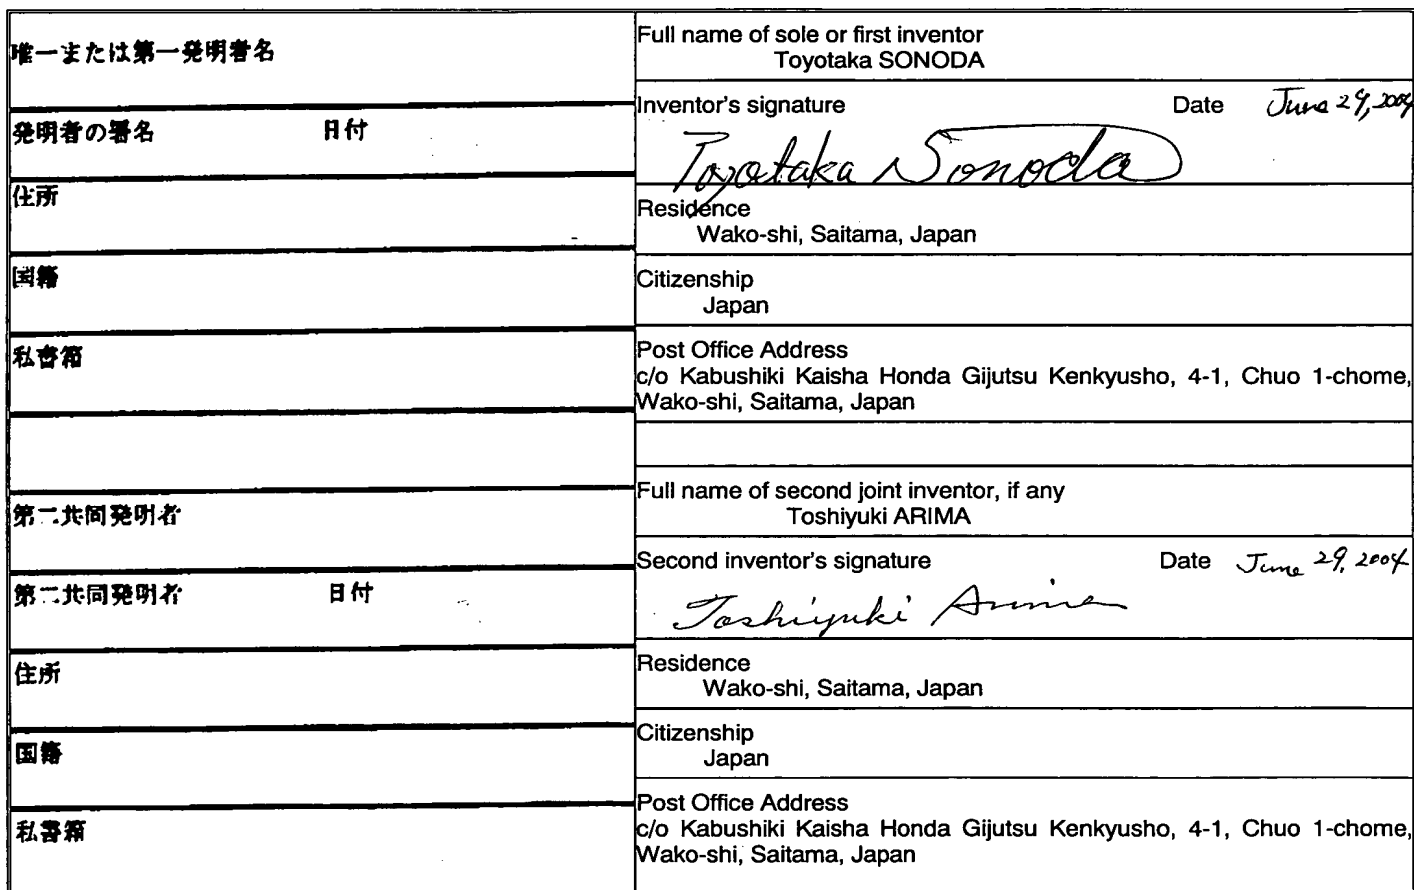 唯一または第一発明者名
Full name of sole or first inventor
Toyotaka SONODA
発明者の署名 日付
Inventor's signature Date June 29, 2004
Toyotaka Sonoda
住所
Residence
Wako-shi, Saitama, Japan
国籍
Citizenship
Japan
私書箱
Post Office Address
c/o Kabushiki Kaisha Honda Gijutsu Kenkyusho, 4-1, Chuo 1-chome,
Wako-shi, Saitama, Japan
第二共同発明者
Full name of second joint inventor, if any
Toshiyuki ARIMA
第二共同発明者 日付
Second inventor's signature Date June 29, 2004
Toshiyuki Arima
住所
Residence
Wako-shi, Saitama, Japan
国籍
Citizenship
Japan
私書箱
Post Office Address
c/o Kabushiki Kaisha Honda Gijutsu Kenkyusho, 4-1, Chuo 1-chome,
Wako-shi, Saitama, Japan